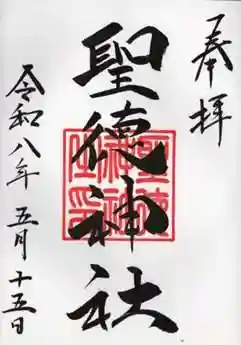 奉拝
聖徳神社
令和八年五月十五日